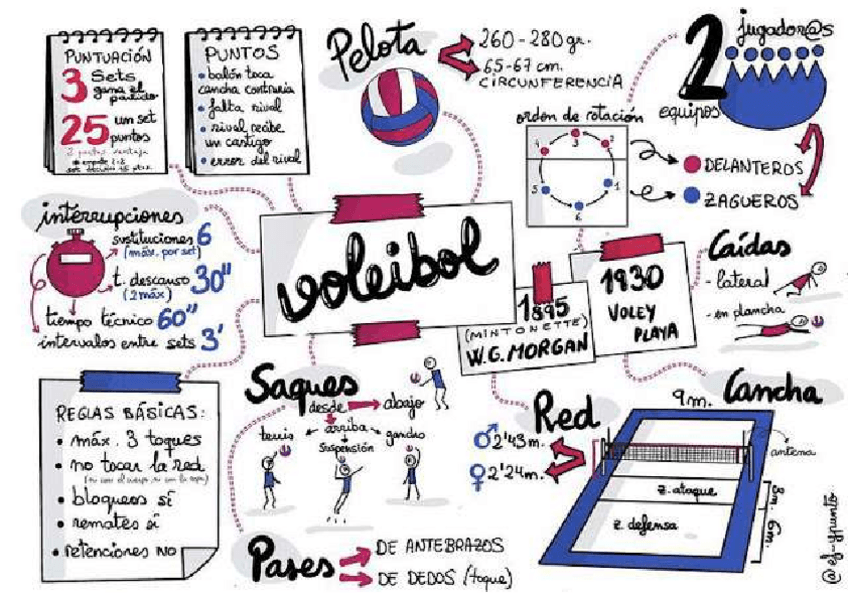 PUNTUACIÓN
3 sets
gana el
partido
25 un set
puntos
PUNTOS
• balón toca
cancha contraria
• falta rival
• rival recibe
un castigo
• error del rival
Pelota
260-280 gr.
65-67 cm.
CIRCUNFERENCIA
2 equipos
jugador@s
orden de rotación
4 3 2
5 6 1
DELANTEROS
ZAGUEROS
interrupciones
sustituciones 6
(máx. por set)
t. descanso 30"
(2 máx)
tiempo técnico 60"
intervalos entre sets 3'
voleibol
1895
(MINTONETTE)
W.G. MORGAN
1930
VOLEY
PLAYA
Caídas
- lateral
- en plancha
REGLAS BÁSICAS:
• máx. 3 toques
• no tocar la red
• bloqueos sí
• remates sí
• retenciones NO
Saques
desde
abajo
arriba
tenis
suspensión
gancho
Red
♂ 2'43 m.
♀ 2'24 m.
Cancha
9 m.
antena
z. ataque
3 m.
z. defensa
6 m.
Pases
DE ANTEBRAZOS
DE DEDOS (toque)
@ef_ypunto